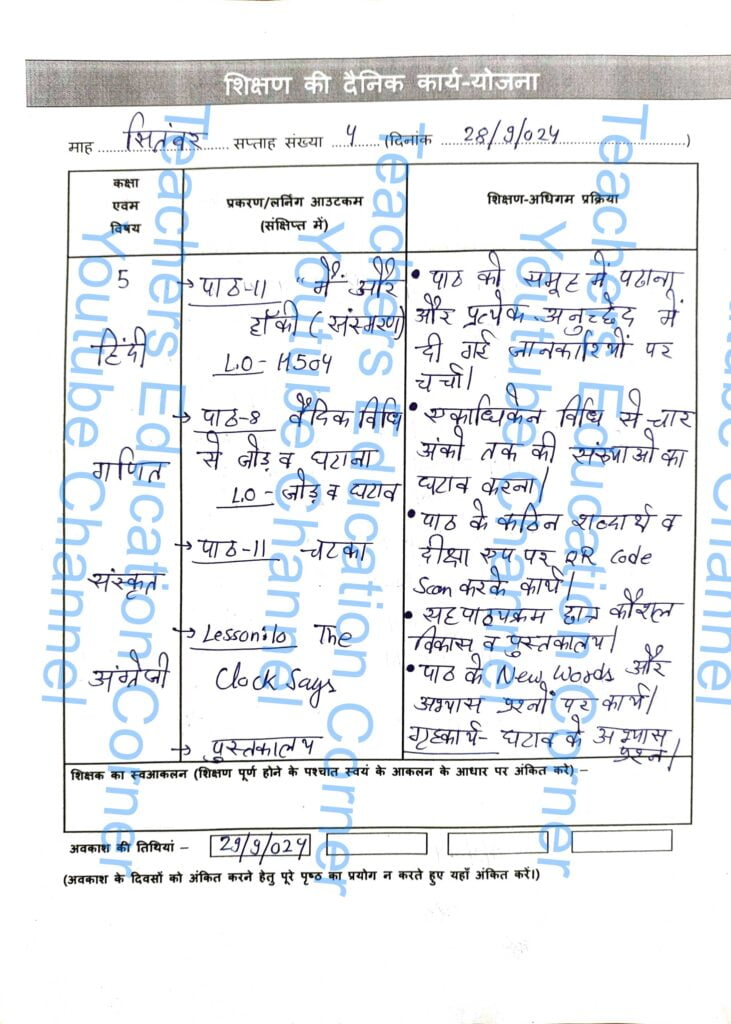 शिक्षण की दैनिक कार्य-योजना
माह सितंबर सप्ताह संख्या 4 (दिनांक 28/9/024)
कक्षा एवम विषय
प्रकरण/लर्निंग आउटकम
(संक्षिप्त में)
शिक्षण-अधिगम प्रक्रिया
5
हिंदी
→ पाठ-11 "मैं और
हॉकी (संस्मरण)
L.O - H504
• पाठ को समूह में पढाना
और प्रत्येक अनुच्छेद में
दी गई जानकारियों पर
चर्चा।
गणित
→ पाठ-8 वैदिक विधि
से जोड़ व घटाना
L.O - जोड़ व घटाव
• एकाधिकेन विधि से चार
अंको तक की संख्याओ का
घटाव करना।
संस्कृत
→ पाठ-11 चटका
• पाठ के कठिन शब्दार्थ व
दीक्षा एप पर QR Code
Scan करके कार्य।
• सहपाठयक्रम द्वारा कौशल
विकास व पुस्तकालय।
अंग्रेजी
→ Lesson:10 The
Clock Says
• पाठ के New Words और
अभ्यास प्रश्नों पर कार्य।
→ पुस्तकालय
गृहकार्य- घटाव के अभ्यास
प्रश्न।
शिक्षक का स्वआकलन (शिक्षण पूर्ण होने के पश्चात स्वयं के आकलन के आधार पर अंकित करे) –
अवकाश की तिथियां – 29/9/024
(अवकाश के दिवसों को अंकित करने हेतु पूरे पृष्ठ का प्रयोग न करते हुए यहाँ अंकित करें।)
Teachers Education Corner
Youtube Channel
Teachers Education Corner
Youtube Channel
Teachers Education Corner
Youtube Channel